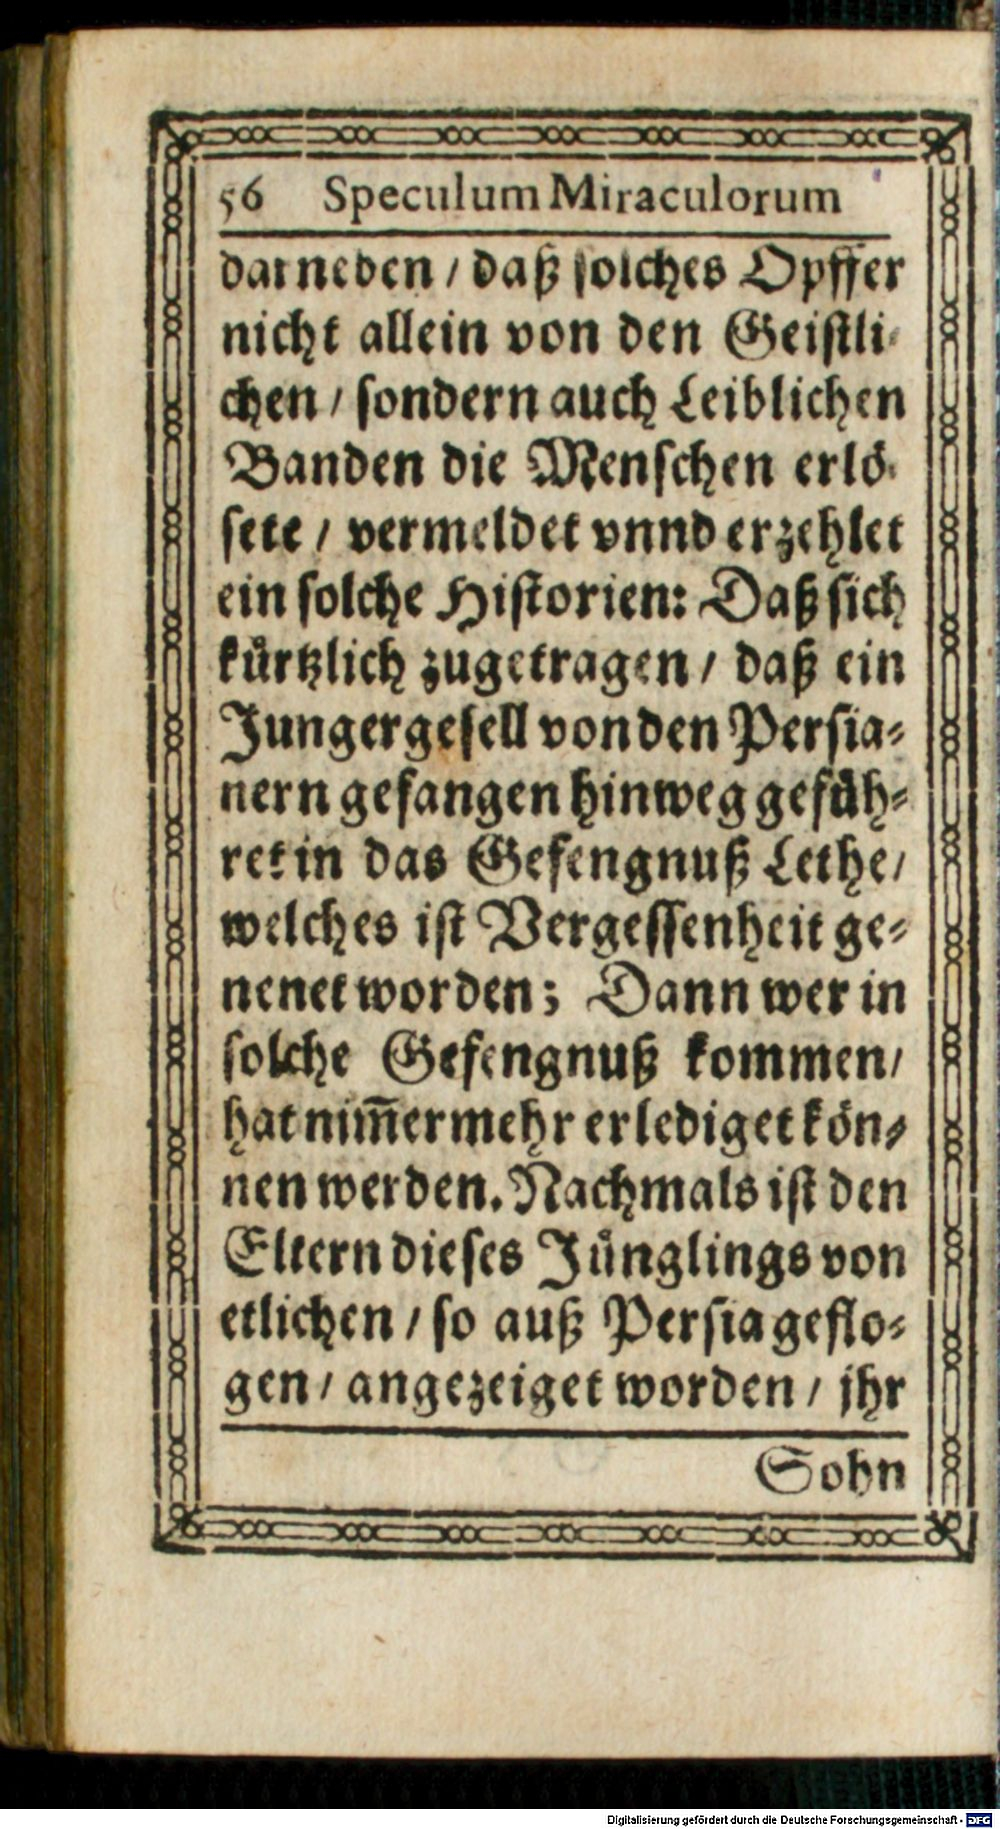 56 Speculum Miraculorum
darneben / daß solches Opffer
nicht allein von den Geistli-
chen / sondern auch Leiblichen
Banden die Menschen erlö-
sete / vermeldet vnnd erzehlet
ein solche Historien: Daß sich
kürtzlich zugetragen / daß ein
Jungergesell von den Persia-
nern gefangen hinweg gefüh-
ret in das Gefengnuß Lethe /
welches ist Vergessenheit ge-
nenet worden; Dann wer in
solche Gefengnuß kommen /
hat nim̄ermehr erlediget kön-
nen werden. Nachmals ist den
Eltern dieses Jünglings von
etlichen / so auß Persia geflo-
gen / angezeiget worden / jhr
Sohn
Digitalisierung gefördert durch die Deutsche Forschungsgemeinschaft - DFG